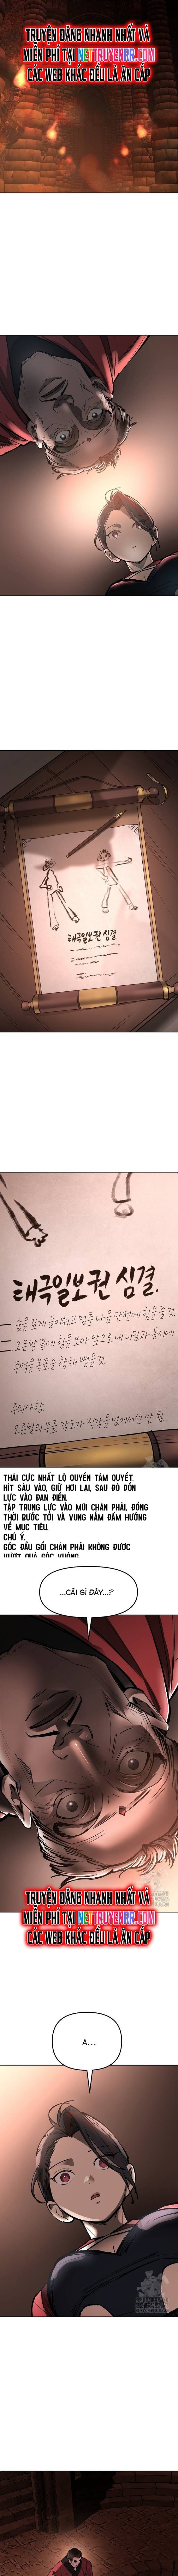 TRUYỆN ĐĂNG NHANH NHẤT VÀ
MIỄN PHÍ TẠI NETTRUYENRR.COM
CÁC WEB KHÁC ĐỀU LÀ ĂN CẮP
태극일보권 심결.
태극일보권 심결.
숨을 깊게 들이쉬고 멈춘 다음 단전에 힘을 줄 것.
오른발 끝에 힘을 모아 앞으로 내디딤과 동시에
주먹을 목표를 향해 뻗을 것.
주의사항.
오른발의 무릎 각도가 직각을 넘어서면 안 됨.
THÁI CỰC NHẤT LỘ QUYỀN TÂM QUYẾT.
HÍT SÂU VÀO, GIỮ HƠI LẠI, SAU ĐÓ DỒN
LỰC VÀO ĐAN ĐIỀN.
TẬP TRUNG LỰC VÀO MŨI CHÂN PHẢI, ĐỒNG
THỜI BƯỚC TỚI VÀ VUNG NẮM ĐẤM HƯỚNG
VỀ MỤC TIÊU.
CHÚ Ý.
GÓC ĐẦU GỐI CHÂN PHẢI KHÔNG ĐƯỢC
VƯỢT QUÁ GÓC VUÔNG.
...CÁI GÌ ĐÂY...?
TRUYỆN ĐĂNG NHANH NHẤT VÀ
MIỄN PHÍ TẠI NETTRUYENRR.COM
CÁC WEB KHÁC ĐỀU LÀ ĂN CẮP
A...